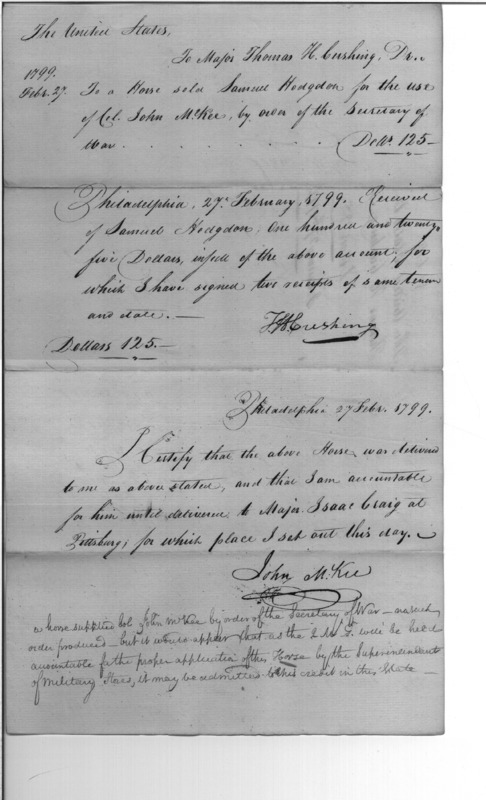 The United States,
To Major Thomas H. Cushing, Dr.
1799.
Febr. 27. To a Horse sold Samuel Hodgdon for the use
of Col. John McKee, by order of the Secretary of
War . . . . . . . Dolls. 125 —
Philadelphia, 27th February, 1799. Received
of Samuel Hodgdon, One hundred and twenty
five Dollars, in full of the above account, for
which I have signed two receipts of same tenor
and date. —
THCushing
Dollars 125. —
Philadelphia 27 Febr. 1799.
I Certify that the above Horse was delivered
to me as above stated, and that I am accountable
for him until delivered to Major Isaac Craig at
Pittsburg, for which place I set out this day. —
John McKee
a horse supplied Col. John McKee by order of the Secretary of War — no such
order produced — but it would appear that as the will be held
accountable for the proper application of this Horse by the Superintendant
of Military Stores, it may be admitted to his credit in this State —